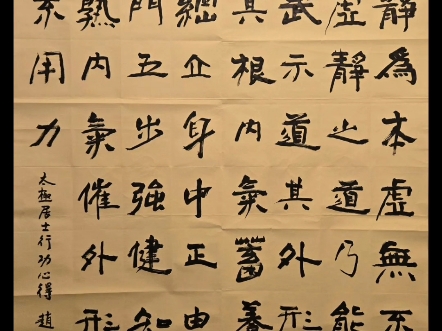 靜為本虛無不
虛靜之道乃能
武示道其外形
其根內氣蓄養
立身中正由
門五步強健知
熟內氣催外形
不用力
太極居士行功心得 趙